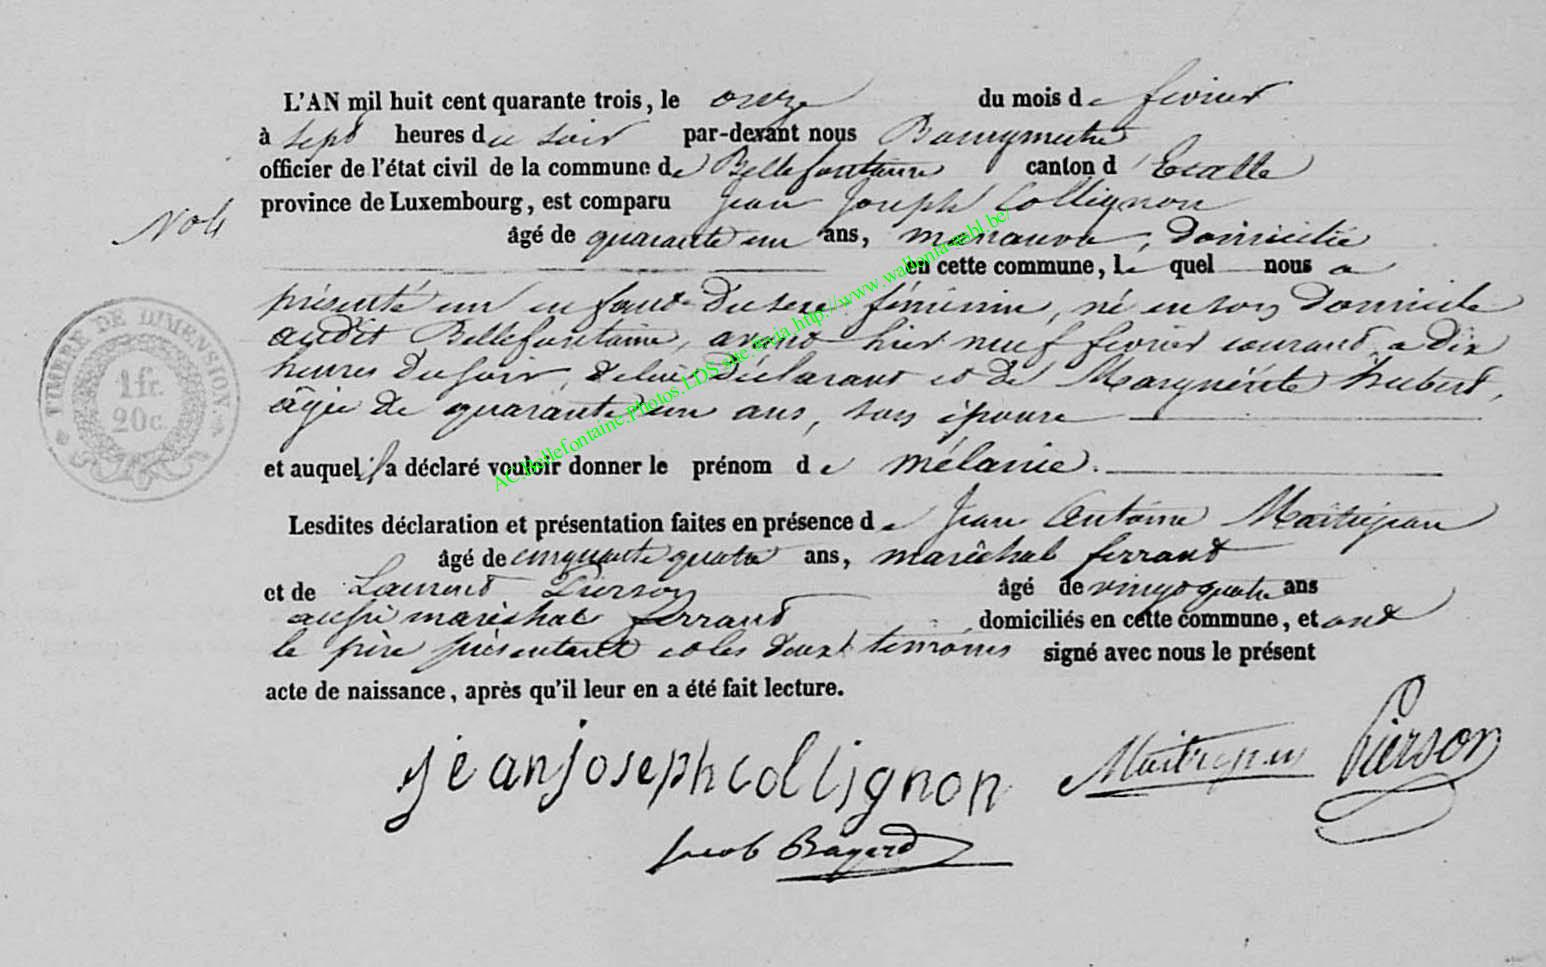 L'AN mil huit cent quarante trois, le onze du mois de fevrier
à sept heures du soir par-devant nous Bourgmestre
officier de l'état civil de la commune de Bellefontaine canton d'Etalle
province de Luxembourg, est comparu Jean Joseph Collignon
No 4
âgé de quarante un ans, manouvre, domicilié
en cette commune, le quel nous a
présenté un enfant du sexe féminin, né en son domicile
audit Bellefontaine, avant hier neuf fevrier courant a dix
heures du soir, de lui Déclarant et de Marguérite hubert,
âgée de quarante un ans, son épouse
et auquel il a déclaré vouloir donner le prénom de mélanie.
Lesdites déclaration et présentation faites en présence de Jean Antoine Maitrejean
âgé de cinquante quatre ans, maréchal ferrant
et de Laurent Pierson âgé de vingt quatre ans
aussi maréchal ferrant domiciliés en cette commune, et ont
le père présentant et les deux témoins signé avec nous le présent
acte de naissance, après qu'il leur en a été fait lecture.
jean joseph collignon Maitrejean Pierson
Jacob Bayard
TIMBRE DE DIMENSION.
1 fr.
20 c.
AC.Bellefontaine.Photos.LDS site Geja http://www.wallonia-asbl.be/